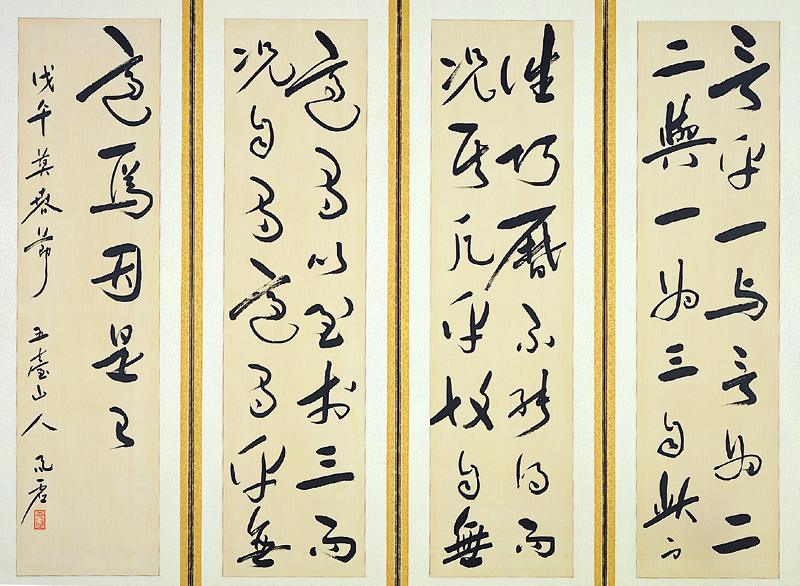 言乎一与言為二
二與一為三自此以
往巧曆不能得而
况其凡乎故自無
適有以至於三而
况自有適有乎無
適焉因是已
戊午莫春節 五臺山人